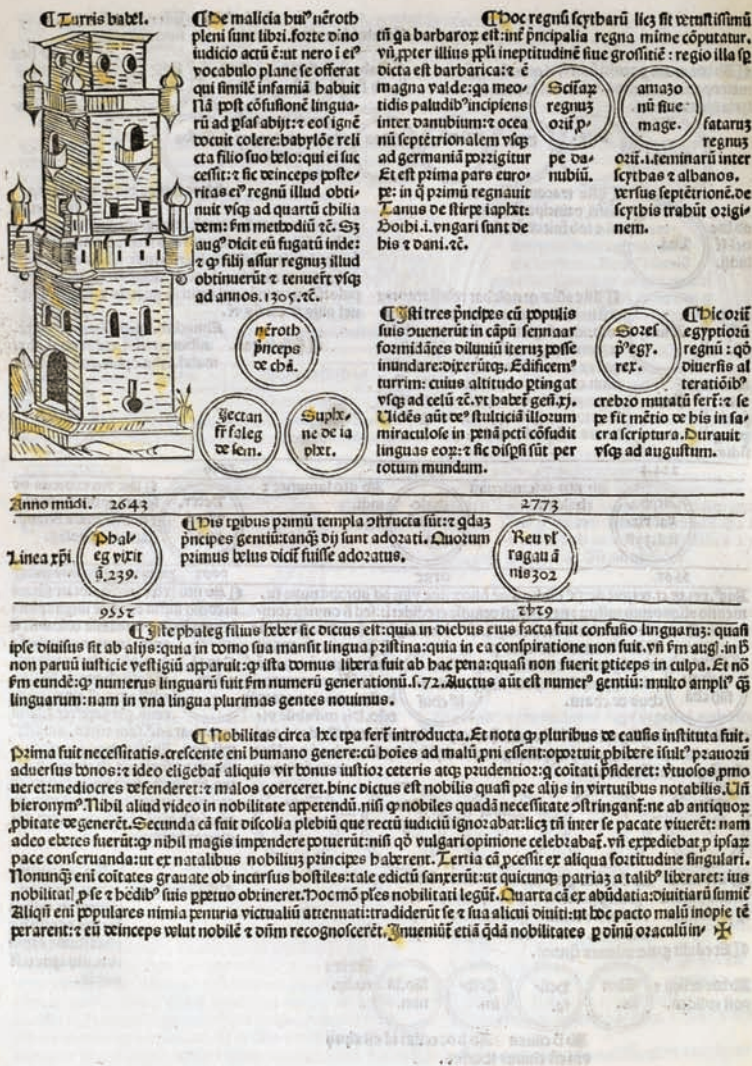 ¶Turris babel.
¶De malicia huiꝰ nēroth
pleni sunt libri.forte dīno
iudicio actū ē:ut nero i eiꝰ
vocabulo plane se offerat
qui similē infamiā habuit
Nā post cōfusionē lingua⸗
rū ad ꝑsas abijt:⁊ eos ignē
docuit colere:babylōe reli
cta filio suo belo:qui ei suc
cessit:⁊ sic deinceps poste⸗
ritas eiꝰ regnū illud obti⸗
nuit vsqꝫ ad quartū chilia
dem:ẜm methodiū ⁊c̄. Sꝫ
augꝰ dicit eū fugatū inde:
⁊ ꝙ filij assur regnuꝫ illud
obtinuerūt ⁊ tenuerūt vsqꝫ
ad annos.1305.⁊c̄.
nēroth
pn̄ceps
de chā.
Jectan
fr̄ faleg
de sem.
Suphx⸗
ne de ia
phet.
¶Hoc regnū scytharū licꝫ sit vetustissimū
tn̄ qa barbaroꝝ est:int̄ pn̄cipalia regna mīme cōputatur.
vn̄.ꝓpter illius ppl̄i ineptitudinē siue grossitiē : regio illa sꝑ
dicta est barbarica:⁊ ē
magna valde:qa meo⸗
tidis paludibꝰincipiens
inter danubium:⁊ ocea
nū septētrionalem vsqꝫ
ad germaniā porrigitur
Et est prima pars euro⸗
pe: in q̄ primū regnauit
Tanus de stirpe iaphet:
Gothi.i.vngari sunt de
his ⁊ dani.⁊c̄.
Scitaꝝ
regnuꝫ
orit̄.ꝓ⸗
pe da⸗
nubiū.
amazo
nū siue
mage.
fataruꝫ
regnuꝫ
orit̄.i.feminarū inter
scythas ⁊ albanos.
versus septētrionē.de
scythis trahūt origi
nem.
¶Isti tres pn̄cipes cū populis
suis ↄuenerūt in cāpū sennaar
formidātes diluuiū iteruꝫ posse
inundare:dixerūtqꝫ. Edificemꝰ
turrim: cuius altitudo ꝑtingat
vsqꝫ ad celū ⁊c̄.vt habet̄ geñ.xj.
Uidēs aūt deꝰ stulticiā illorum
miraculose in penā pctī cōfudit
linguas eoꝝ:⁊ sic disꝑsi sūt per
totum mundum.
Zores
pꝰegy.
rex.
¶Hic orit̄
egyptiorū
regnū : qd̄
diuersis al
teratiōibꝰ
crebro mutatū fert̄:⁊ se
pe fit mētio de his in sa⸗
cra scriptura. Durauit
vsqꝫ ad augustum.
Anno mūdi. 2643 2773
Linea xp̄i.
Phal⸗
eg vixit
ā.239.
¶His tꝑibus primū templa ↄstructa sūt:⁊ qdaꝫ
pn̄cipes gentiū:tanqꝫ dij sunt adorati. Quorum
primus belus dicit̄ fuisse adoratus.
Reu vl
ragau ā
nis302
¶Iste phaleg filius heber sic dictus est:quia in diebus eius facta fuit confusio linguaruꝫ: quasi
ipse diuisus sit ab alijs:quia in domo sua mansit lingua pristina:quia in ea conspiratione non fuit.vn̄ ẜm augl̄.in ℔
non paruū iusticie vestigiū apparuit:ꝙ ista domus libera fuit ab hac pena:quasi non fuerit ꝑticeps in culpa. Et nō
ẜm eundē:ꝙ numerus linguarū fuit ẜm numerū generationū.s.72. Auctus aūt est numerꝰ gentiū: multo ampliꝰ ꝙ
linguarum:nam in vna lingua plurimas gentes nouimus.
¶Nobilitas circa hec tꝑa fert̄ introducta. Et nota ꝙ pluribus de causis instituta fuit.
Prima fuit necessitatis.crescente eni humano genere:cū hoīes ad malū ꝓni essent:oportuit ꝓhibere īsultꝰ prauorū
aduersus bonos:⁊ ideo eligebat̄ aliquis vir bonus iustior ceteris atqꝫ prudentior:q̄ cōitati pn̄sideret: v̄tuosos ꝓmo
ueret:mediocres defenderet:⁊ malos coerceret.hinc dictus est nobilis quasi pre alijs in virtutibus notabilis. Un̄
hieronymꝰ. Nihil aliud video in nobilitate appetendū.nisi ꝙ nobiles quadā necessitate ↄstringant̄:ne ab antiquoꝝ
ꝓbitate degenerēt. Secunda cā fuit discolia plebiū que rectū iudiciū ignorabat:licꝫ tn̄ inter se pacate viuerēt: nam
adeo ebetes fuerūt:ꝙ nihil magis impendere potuerūt:nisi qd̄ vulgari opinione celebrabat̄.vn̄ expediebat ꝓ ipsaꝝ
pace conseruanda:ut ex natalibus nobiliuꝫ principes haberent. Tertia cā ꝓcessit ex aliqua fortitudine singulari.
Nonunqꝫ eni cōitates grauate ob incursus hostiles:tale edictū sanxerūt:ut quicunqꝫ patriaꝫ a talibꝰ liberaret: ius
nobilitatꝭ ꝓ se ⁊ hedibꝰ suis ꝑpetuo obtineret. Hoc mō pl̄es nobilitati legūt̄. Quarta cā ex abūdatia:diuitiarū sumit̄
Aliqn̄ eni populares nimia penuria victualiū attenuati:tradiderūt se ⁊ sua alicui diuiti:ut hoc pacto malū inopie tē
perarent:⁊ eū deinceps velut nobilē ⁊ dn̄m recognoscerēt. Inueniūt̄ etiā qdā nobilitates ꝑ diuinū oraculū in⸗ ✠